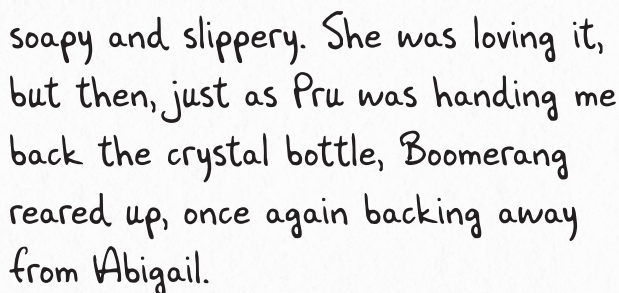 soapy and slippery. She was loving it,
but then, just as Pru was handing me
back the crystal bottle, Boomerang
reared up, once again backing away
from Abigail.